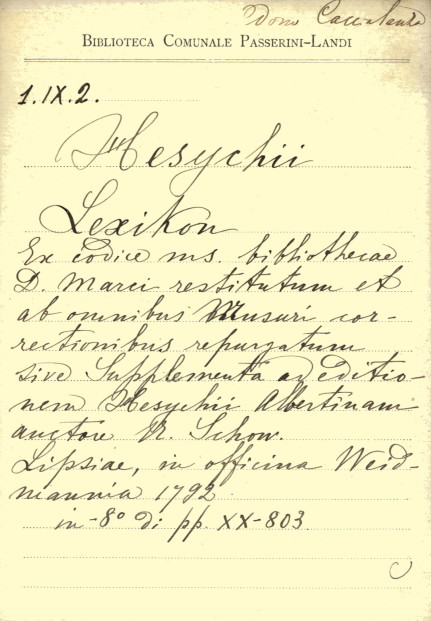 Dono Caccialanza
BIBLIOTECA COMUNALE PASSERINI-LANDI
1.IX.2.
Hesychii
Lexikon
Ex codice ms. bibliothecae
D. Marci restitutum et
ab omnibus Musuri cor-
rectionibus repurgatum
sive Supplementa ad editio-
nem Hesychii Albertinam
auctore N. Schow.
Lipsiae, in officina Weid-
mannia 1792
in-8° di pp. XX-803.